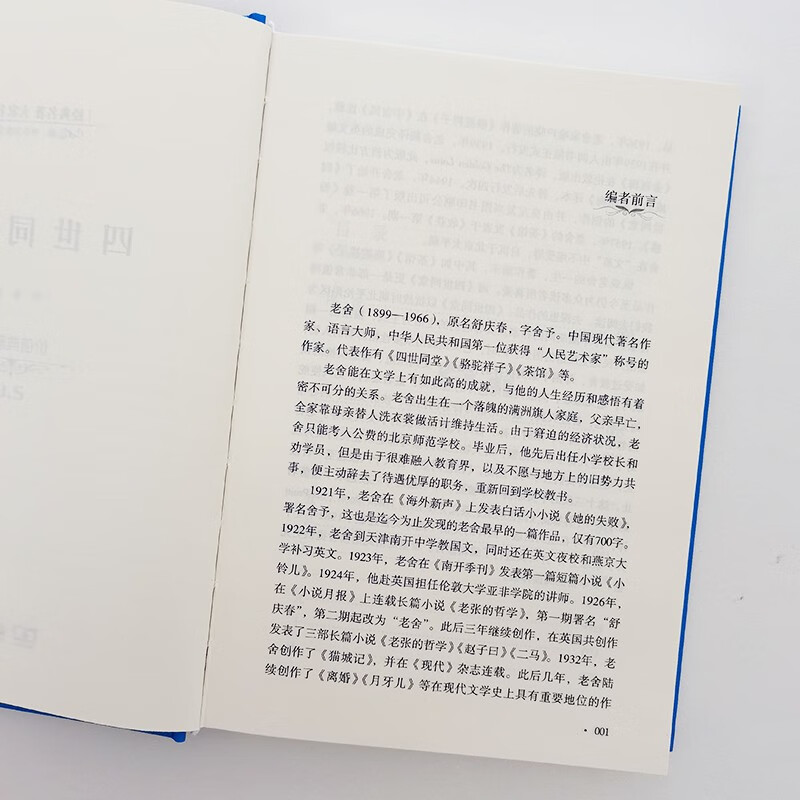 编者前言
老舍（1899—1966），原名舒庆春，字舍予。中国现代著名作
家、语言大师，中华人民共和国第一位获得“人民艺术家”称号的
作家。代表作有《四世同堂》《骆驼祥子》《茶馆》等。
老舍能在文学上有如此高的成就，与他的人生经历和感悟有着
密不可分的关系。老舍出生在一个落魄的满洲旗人家庭，父亲早亡，
全家靠母亲替人洗衣裳做活计维持生活。由于窘迫的经济状况，老
舍只能考入公费的北京师范学校。毕业后，他先后出任小学校长和
劝学员，但是由于很难融入教育界，以及不愿与地方上的旧势力共
事，便主动辞去了待遇优厚的职务，重新回到学校教书。
1921年，老舍在《海外新声》上发表白话小小说《她的失败》，
署名舍予，这也是迄今为止发现的老舍最早的一篇作品，仅有700字。
1922年，老舍到天津南开中学教国文，同时还在英文夜校和燕京大
学补习英文。1923年，老舍在《南开季刊》发表第一篇短篇小说《小
铃儿》。1924年，他赴英国担任伦敦大学亚非学院的讲师。1926年，
在《小说月报》上连载长篇小说《老张的哲学》，第一期署名“舒
庆春”，第二期起改为“老舍”。此后三年继续创作，在英国共创作
发表了三部长篇小说《老张的哲学》《赵子曰》《二马》。1932年，老
舍创作了《猫城记》，并在《现代》杂志连载。此后几年，老舍陆
续创作了《离婚》《月牙儿》等在现代文学史上具有重要地位的作
· 001
四世同